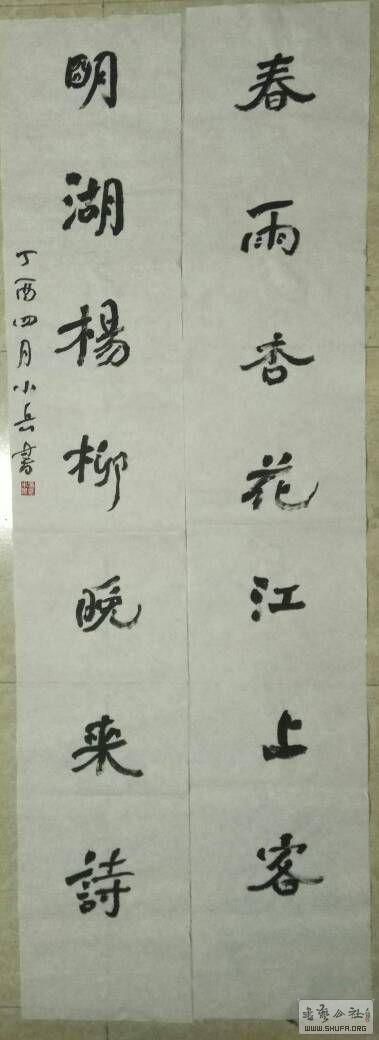 春雨香花江上客
明湖楊柳晚来詩
丁酉四月小岳書
WWW.SHUFA.ORG